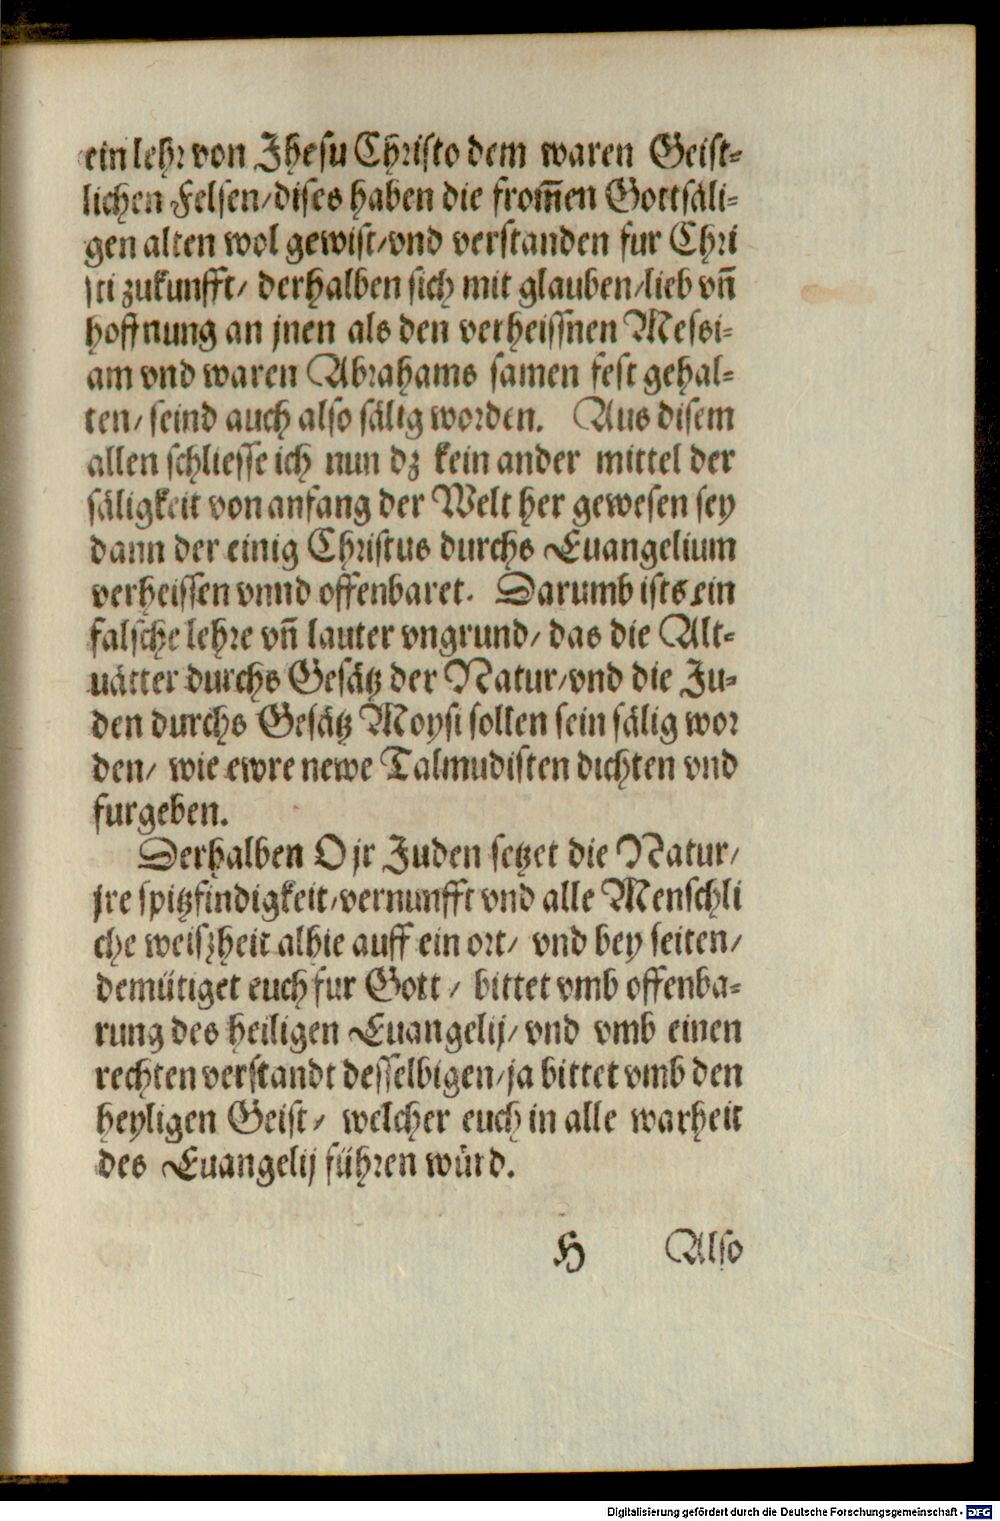 ein lehr von Jhesu Christo dem waren Geist-
lichen Felsen/dises haben die from̃en Gottsäli-
gen alten wol gewist/vnd verstanden fur Chri
sti zukunfft/ derhalben sich mit glauben/lieb vñ
hoffnung an jnen als den verheissnen Messi-
am vnd waren Abrahams samen fest gehal-
ten/ seind auch also sälig worden. Aus disem
allen schliesse ich nun dz kein ander mittel der
säligkeit von anfang der Welt her gewesen sey
dann der einig Christus durchs Euangelium
verheissen vnnd offenbaret. Darumb ists ein
falsche lehre vñ lauter vngrund/ das die Alt-
uätter durchs Gesätz der Natur/vnd die Ju-
den durchs Gesätz Moysi sollen sein sälig wor
den/ wie ewre newe Talmudisten dichten vnd
furgeben.
Derhalben O jr Juden setzet die Natur/
jre spitzfindigkeit/vernunfft vnd alle Menschli
che weiszheit alhie auff ein ort/ vnd bey seiten/
demütiget euch fur Gott / bittet vmb offenba-
rung des heiligen Euangelij/ vnd vmb einen
rechten verstandt desselbigen/ja bittet vmb den
heyligen Geist/ welcher euch in alle warheit
des Euangelij führen würd.
H Also
Digitalisierung gefördert durch die Deutsche Forschungsgemeinschaft - DFG